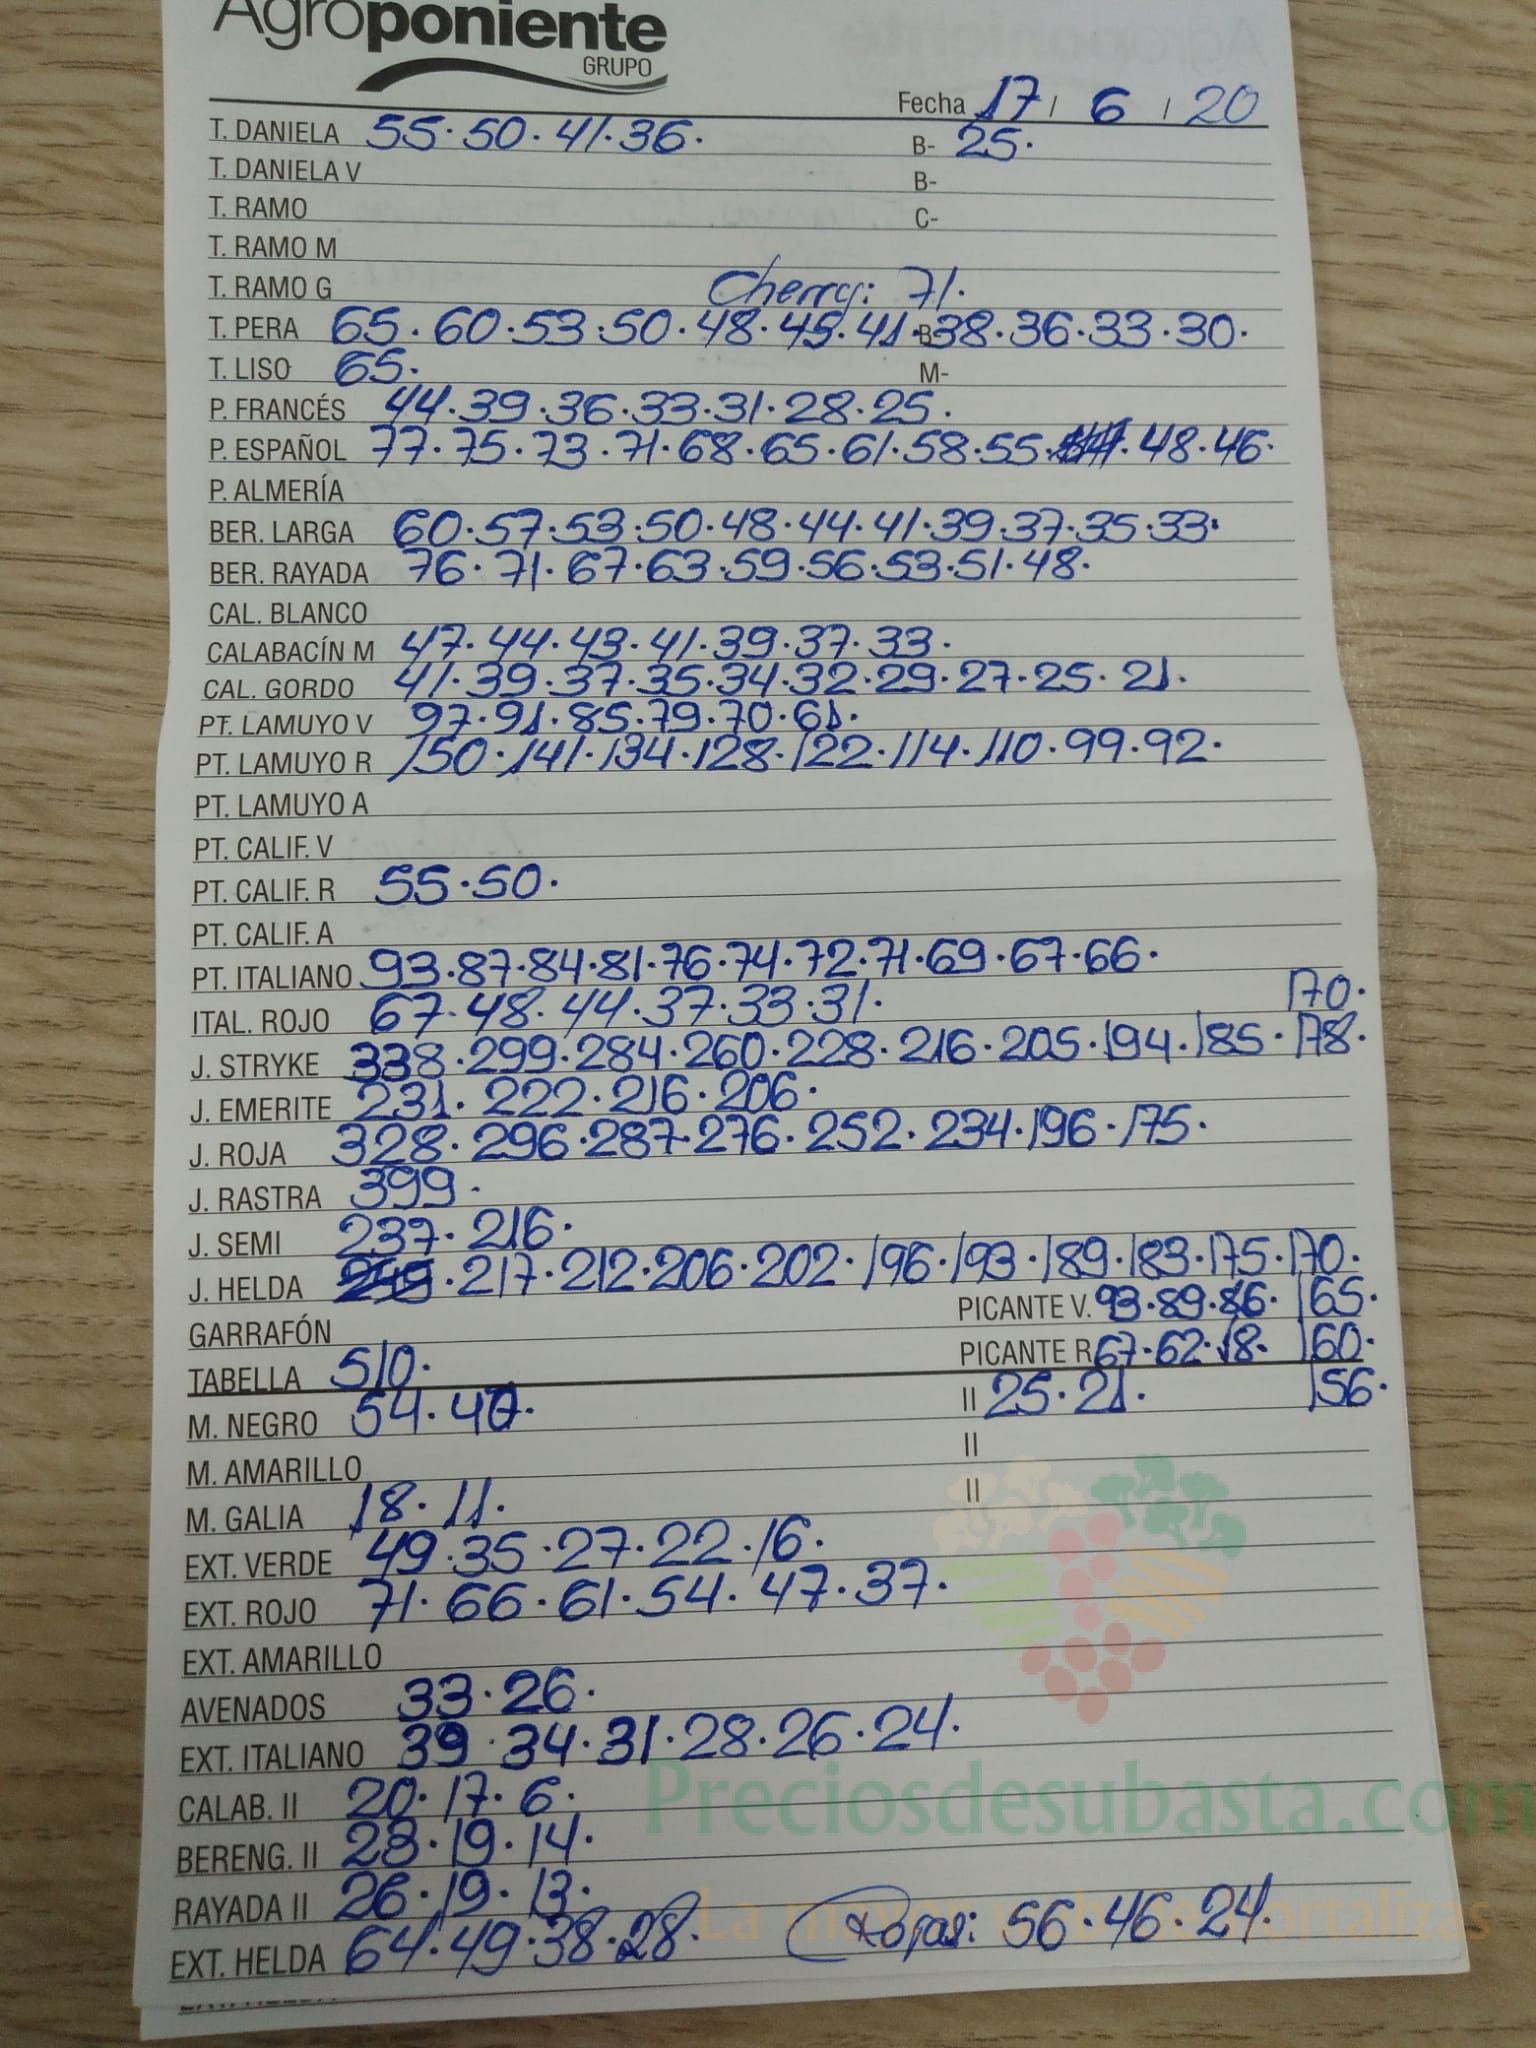 Agroponiente
GRUPO
Fecha 17 / 6 / 20
T. DANIELA 55·50·41·36· B- 25·
T. DANIELA V B-
T. RAMO C-
T. RAMO M
T. RAMO G Cherry: 71·
T. PERA 65·60·53·50·48·45·41· B- 38·36·33·30·
T. LISO 65· M-
P. FRANCÉS 44·39·36·33·31·28·25·
P. ESPAÑOL 77·75·73·71·68·65·61·58·55· ·48·46·
P. ALMERÍA
BER. LARGA 60·57·53·50·48·44·41·39·37·35·33·
BER. RAYADA 76·71·67·63·59·56·53·51·48·
CAL. BLANCO
CALABACÍN M 47·44·43·41·39·37·33·
CAL. GORDO 41·39·37·35·34·32·29·27·25·21·
PT. LAMUYO V 97·91·85·79·70·61·
PT. LAMUYO R 150·141·134·128·122·114·110·99·92·
PT. LAMUYO A
PT. CALIF. V
PT. CALIF. R 55·50·
PT. CALIF. A
PT. ITALIANO 93·87·84·81·76·74·72·71·69·67·66·
ITAL. ROJO 67·48·44·37·33·31· 170·
J. STRYKE 338·299·284·260·228·216·205·194·185·178·
J. EMERITE 231·222·216·206·
J. ROJA 328·296·287·276·252·234·196·175·
J. RASTRA 399·
J. SEMI 237·216·
J. HELDA ·217·212·206·202·196·193·189·183·175·170·
PICANTE V. 93·89·86· 165·
GARRAFÓN
PICANTE R 67·62·18· 160·
TABELLA 510·
M. NEGRO 54·40· II 25·21· 156·
M. AMARILLO II
M. GALIA 18·11· II
EXT. VERDE 49·35·27·22·16·
EXT. ROJO 71·66·61·54·47·37·
EXT. AMARILLO
AVENADOS 33·26·
EXT. ITALIANO 39·34·31·28·26·24·
CALAB. II 20·17·6·
Preciosdesubasta.com
BERENG. II 23·19·14·
RAYADA II 26·19·13·
EXT. HELDA 64·49·38·28· Rojas: 56·46·24·